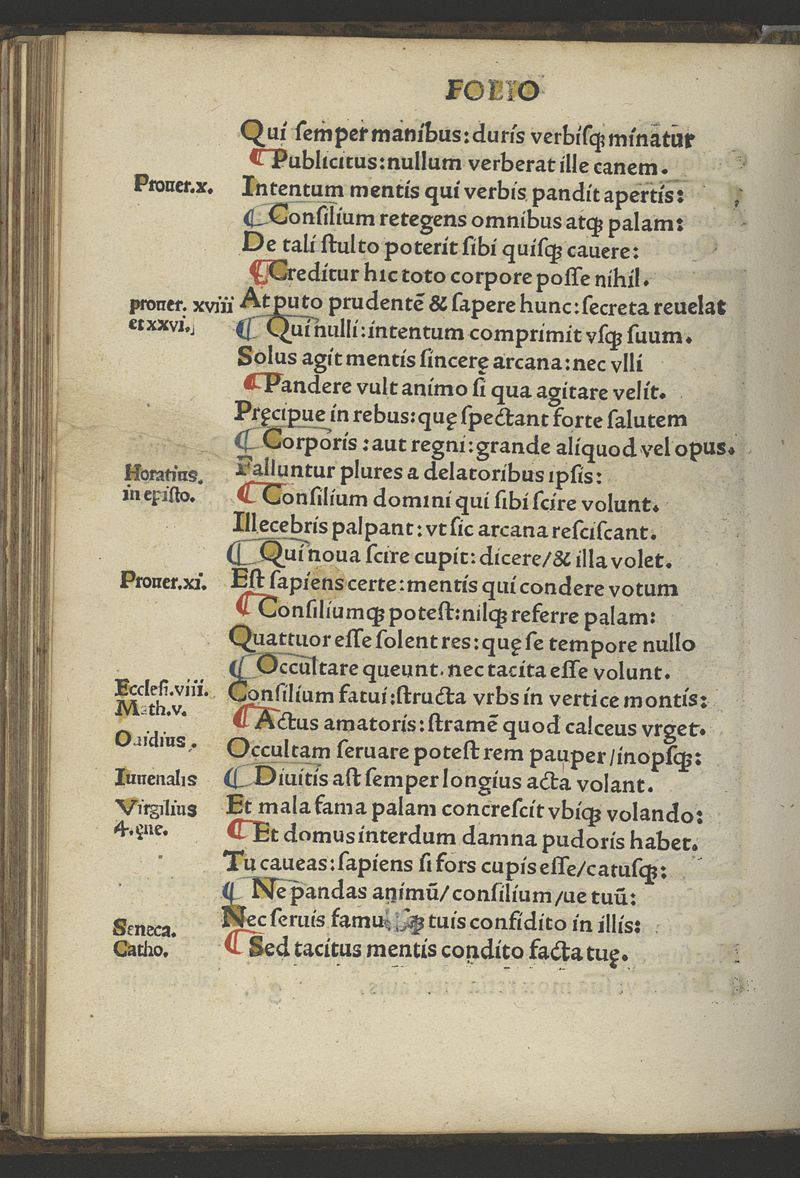 FOLIO
Qui ſemper manibus: duris verbiſqꝫ minãtur
¶ Publicitus: nullum verberat ille canem.
Prouer.x. Intentum mentis qui verbis pandit apertis:
¶ Conſilium retegens omnibus atqꝫ palam:
De tali ſtulto poterit ſibi quiſqꝫ cauere:
¶ Creditur hic toto corpore poſſe nihil.
prouer. xviii At puto prudentẽ & ſapere hunc: ſecreta reuelat
et xxvi. ¶ Qui nulli: intentum comprimit vſqꝫ ſuum.
Solus agit mentis ſincerę arcana: nec vlli
¶ Pandere vult animo ſi qua agitare velit.
Pręcipue in rebus: quę ſpectant forte ſalutem
¶ Corporis: aut regni: grande aliquod vel opus.
Horatius. Falluntur plures a delatoribus ipſis:
in epiſto. ¶ Conſilium domini qui ſibi ſcire volunt.
Illecebris palpant: vt ſic arcana reſciſcant.
¶ Qui noua ſcire cupit: dicere/& illa volet.
Prouer.xi. Eſt ſapiens certe: mentis qui condere votum
¶ Conſiliumqꝫ poteſt: nilqꝫ referre palam:
Quattuor eſſe ſolent res: quę ſe tempore nullo
¶ Occultare queunt. nec tacita eſſe volunt.
Eccleſi.viii. Conſilium fatui: ſtructa vrbs in vertice montis:
Math.v. ¶ Actus amatoris: ſtramẽ quod calceus vrget.
Ouidius. Occultam ſeruare poteſt rem pauper/inopſqꝫ:
Iuuenalis ¶ Diuitis aſt ſemper longius acta volant.
Virgilius Et mala fama palam concreſcit vbiqꝫ volando:
4.ęne. ¶ Et domus interdum damna pudoris habet.
Tu caueas: ſapiens ſi fors cupis eſſe/catuſqꝫ:
¶ Ne pandas animũ/conſilium/ue tuũ:
Seneca. Nec ſeruis tuis confidito in illis:
Catho. ¶ Sed tacitus mentis condito facta tuę.